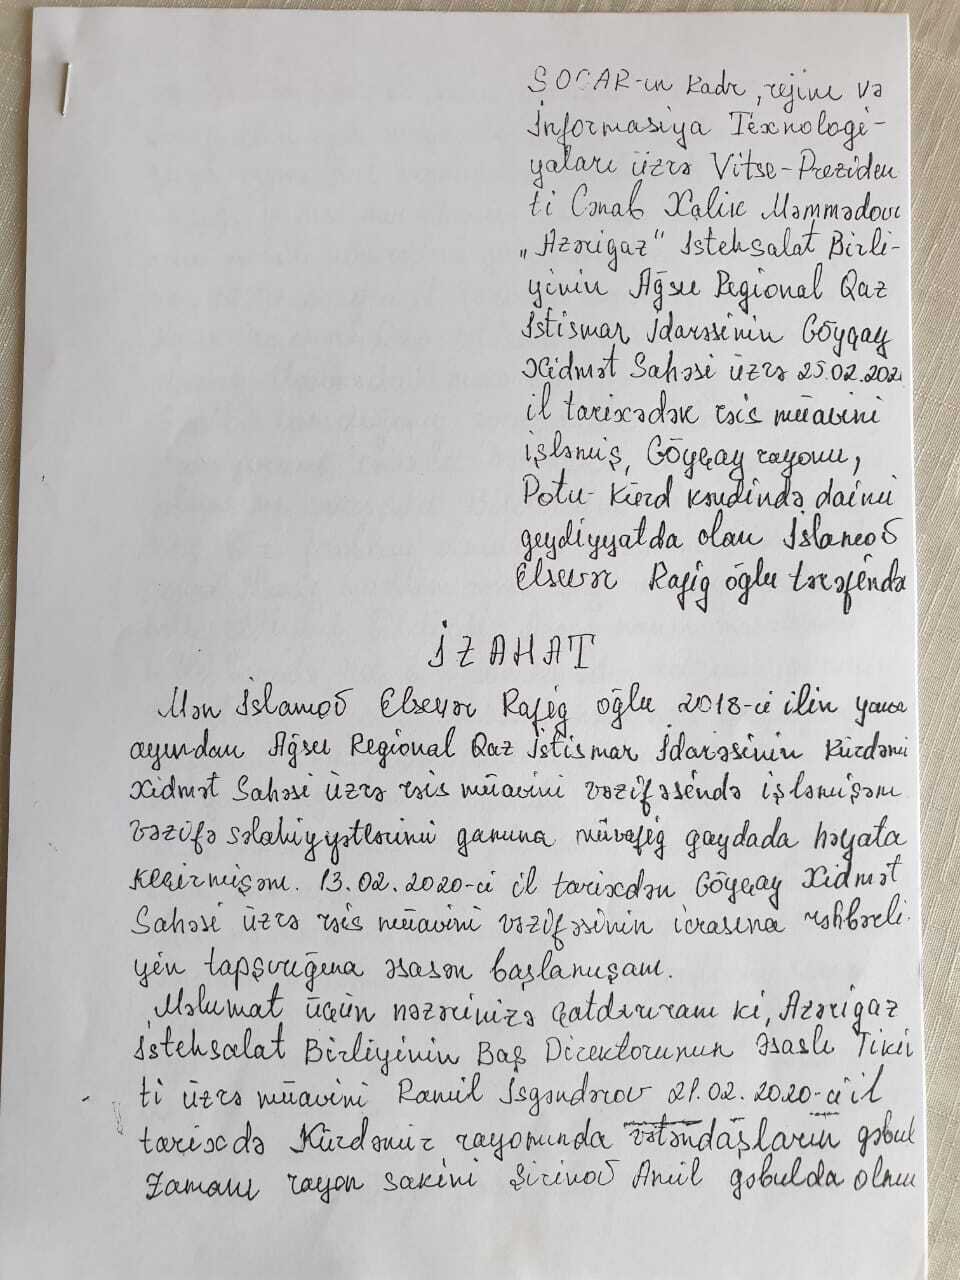 SOCAR-ın Kadr, rejim və
İnformasiya Texnologi-
yaları üzrə Vitse-Preziden
ti Cənab Xalik Məmmədov
„Azəriqaz" Istehsalat Birli-
yinin Ağsu Regional Qaz
Istismar İdarəsinin Göyçay
Xidmət Sahəsi üzrə 25.02.202
il tarixədək rəis müavini
işləmiş, Göyçay rayonu,
Potu-Kürd kəndində daimi
qeydiyyatda olan İslamov
Elsevər Rafig oğlu tərəfində
İZAHAT
Mən İslamov Elsevər Rafig oğlu 2018-ci ilin
ayından Ağsu Regional Qaz İstismar İdarəsinin Kürdəmi
Xidmət Sahəsi üzrə rəis müavini vəzifəsində işləmişəm
vəzifə səlahiyyətlərimi qanuna müvafig qaydada həyata
keçirmişəm. 13.02.2020-ci il tarixdən Göyçay Xidmət
Sahəsi üzrə rəis müavini vəzifəsinin icrasına rəhbərli-
yin tapşırığına əsasən başlamışam.
Məlumat üçün nəzərinizə çatdırıram ki, Azəriqaz
İstehsalat Birliyinin Baş Direktorunun Əsaslı Tikin
ti üzrə müavini Ramil İsgəndərov 21.02.2020-ci il
tarixdə Kürdəmir rayonunda vətəndaşların qəbul
zamanı rayon sakini Şirinov Amil qəbulda olmu